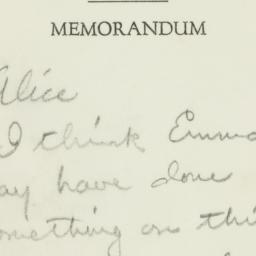 MEMORANDUM
Alice
I think Emma
ay have done
omething on thi